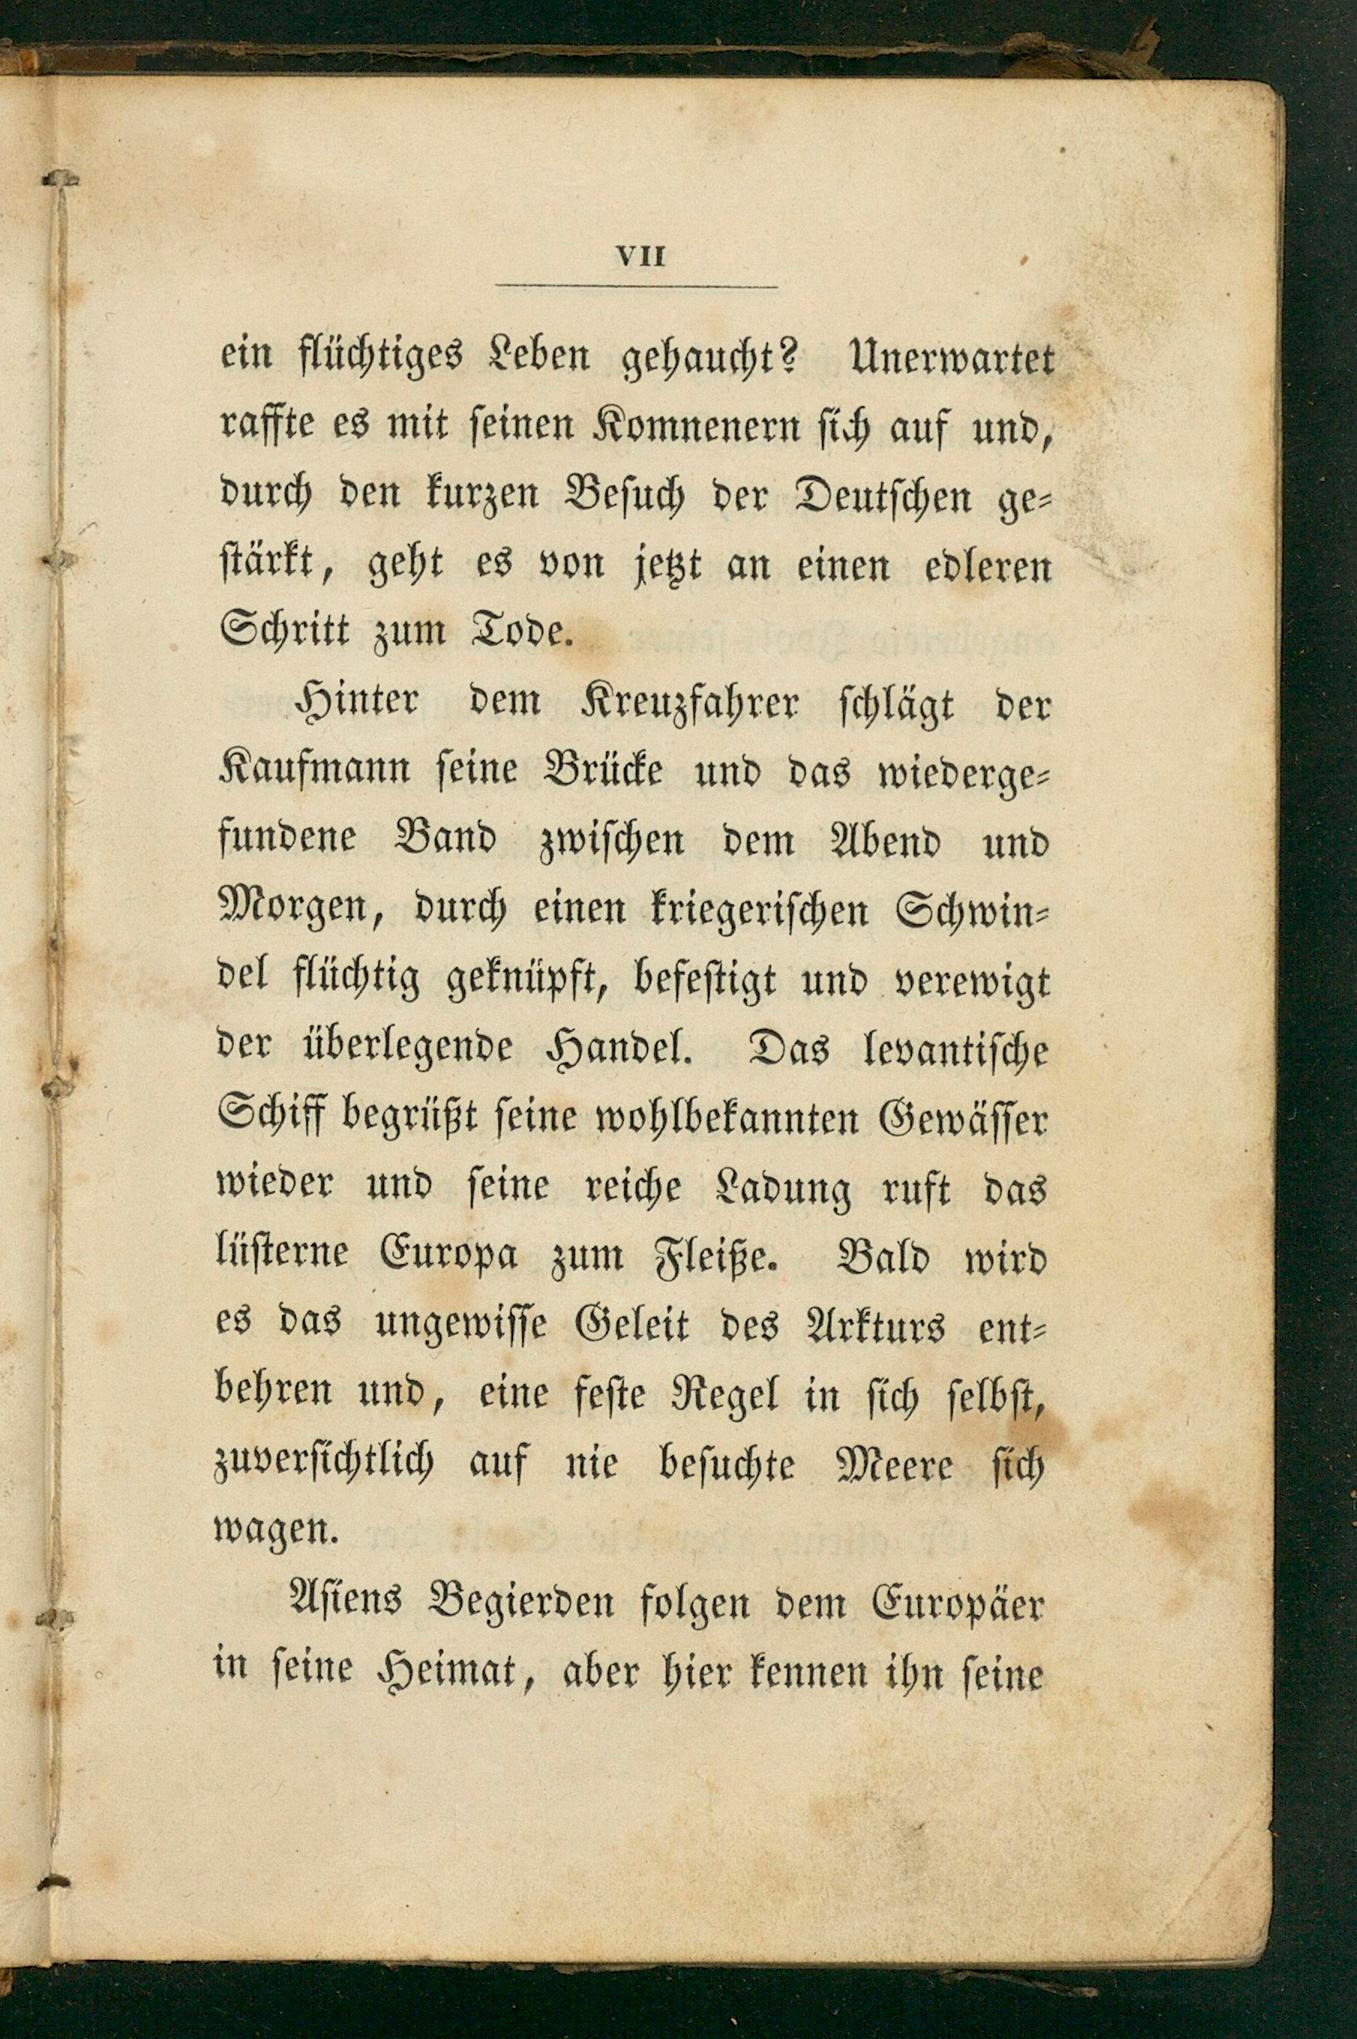 VII
ein flüchtiges Leben gehaucht? Unerwartet
raffte es mit seinen Komnenern sich auf und,
durch den kurzen Besuch der Deutschen ge-
stärkt, geht es von jetzt an einen edleren
Schritt zum Tode.
Hinter dem Kreuzfahrer schlägt der
Kaufmann seine Brücke und das wiederge-
fundene Band zwischen dem Abend und
Morgen, durch einen kriegerischen Schwin-
del flüchtig geknüpft, befestigt und verewigt
der überlegende Handel. Das levantische
Schiff begrüßt seine wohlbekannten Gewässer
wieder und seine reiche Ladung ruft das
lüsterne Europa zum Fleiße. Bald wird
es das ungewisse Geleit des Arkturs ent-
behren und, eine feste Regel in sich selbst,
zuversichtlich auf nie besuchte Meere sich
wagen.
Asiens Begierden folgen dem Europäer
in seine Heimat, aber hier kennen ihn seine